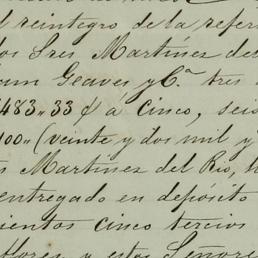 el reintegro de la refer
los Sres Martinez del
um Geaves y Cª tres
483,,33 ¢ á cinco, seis
100,,(veinte y dos mil y
s Martinez del Rio, h
entregado en depósito
cientos cinco tercios
flores, y estos Señores